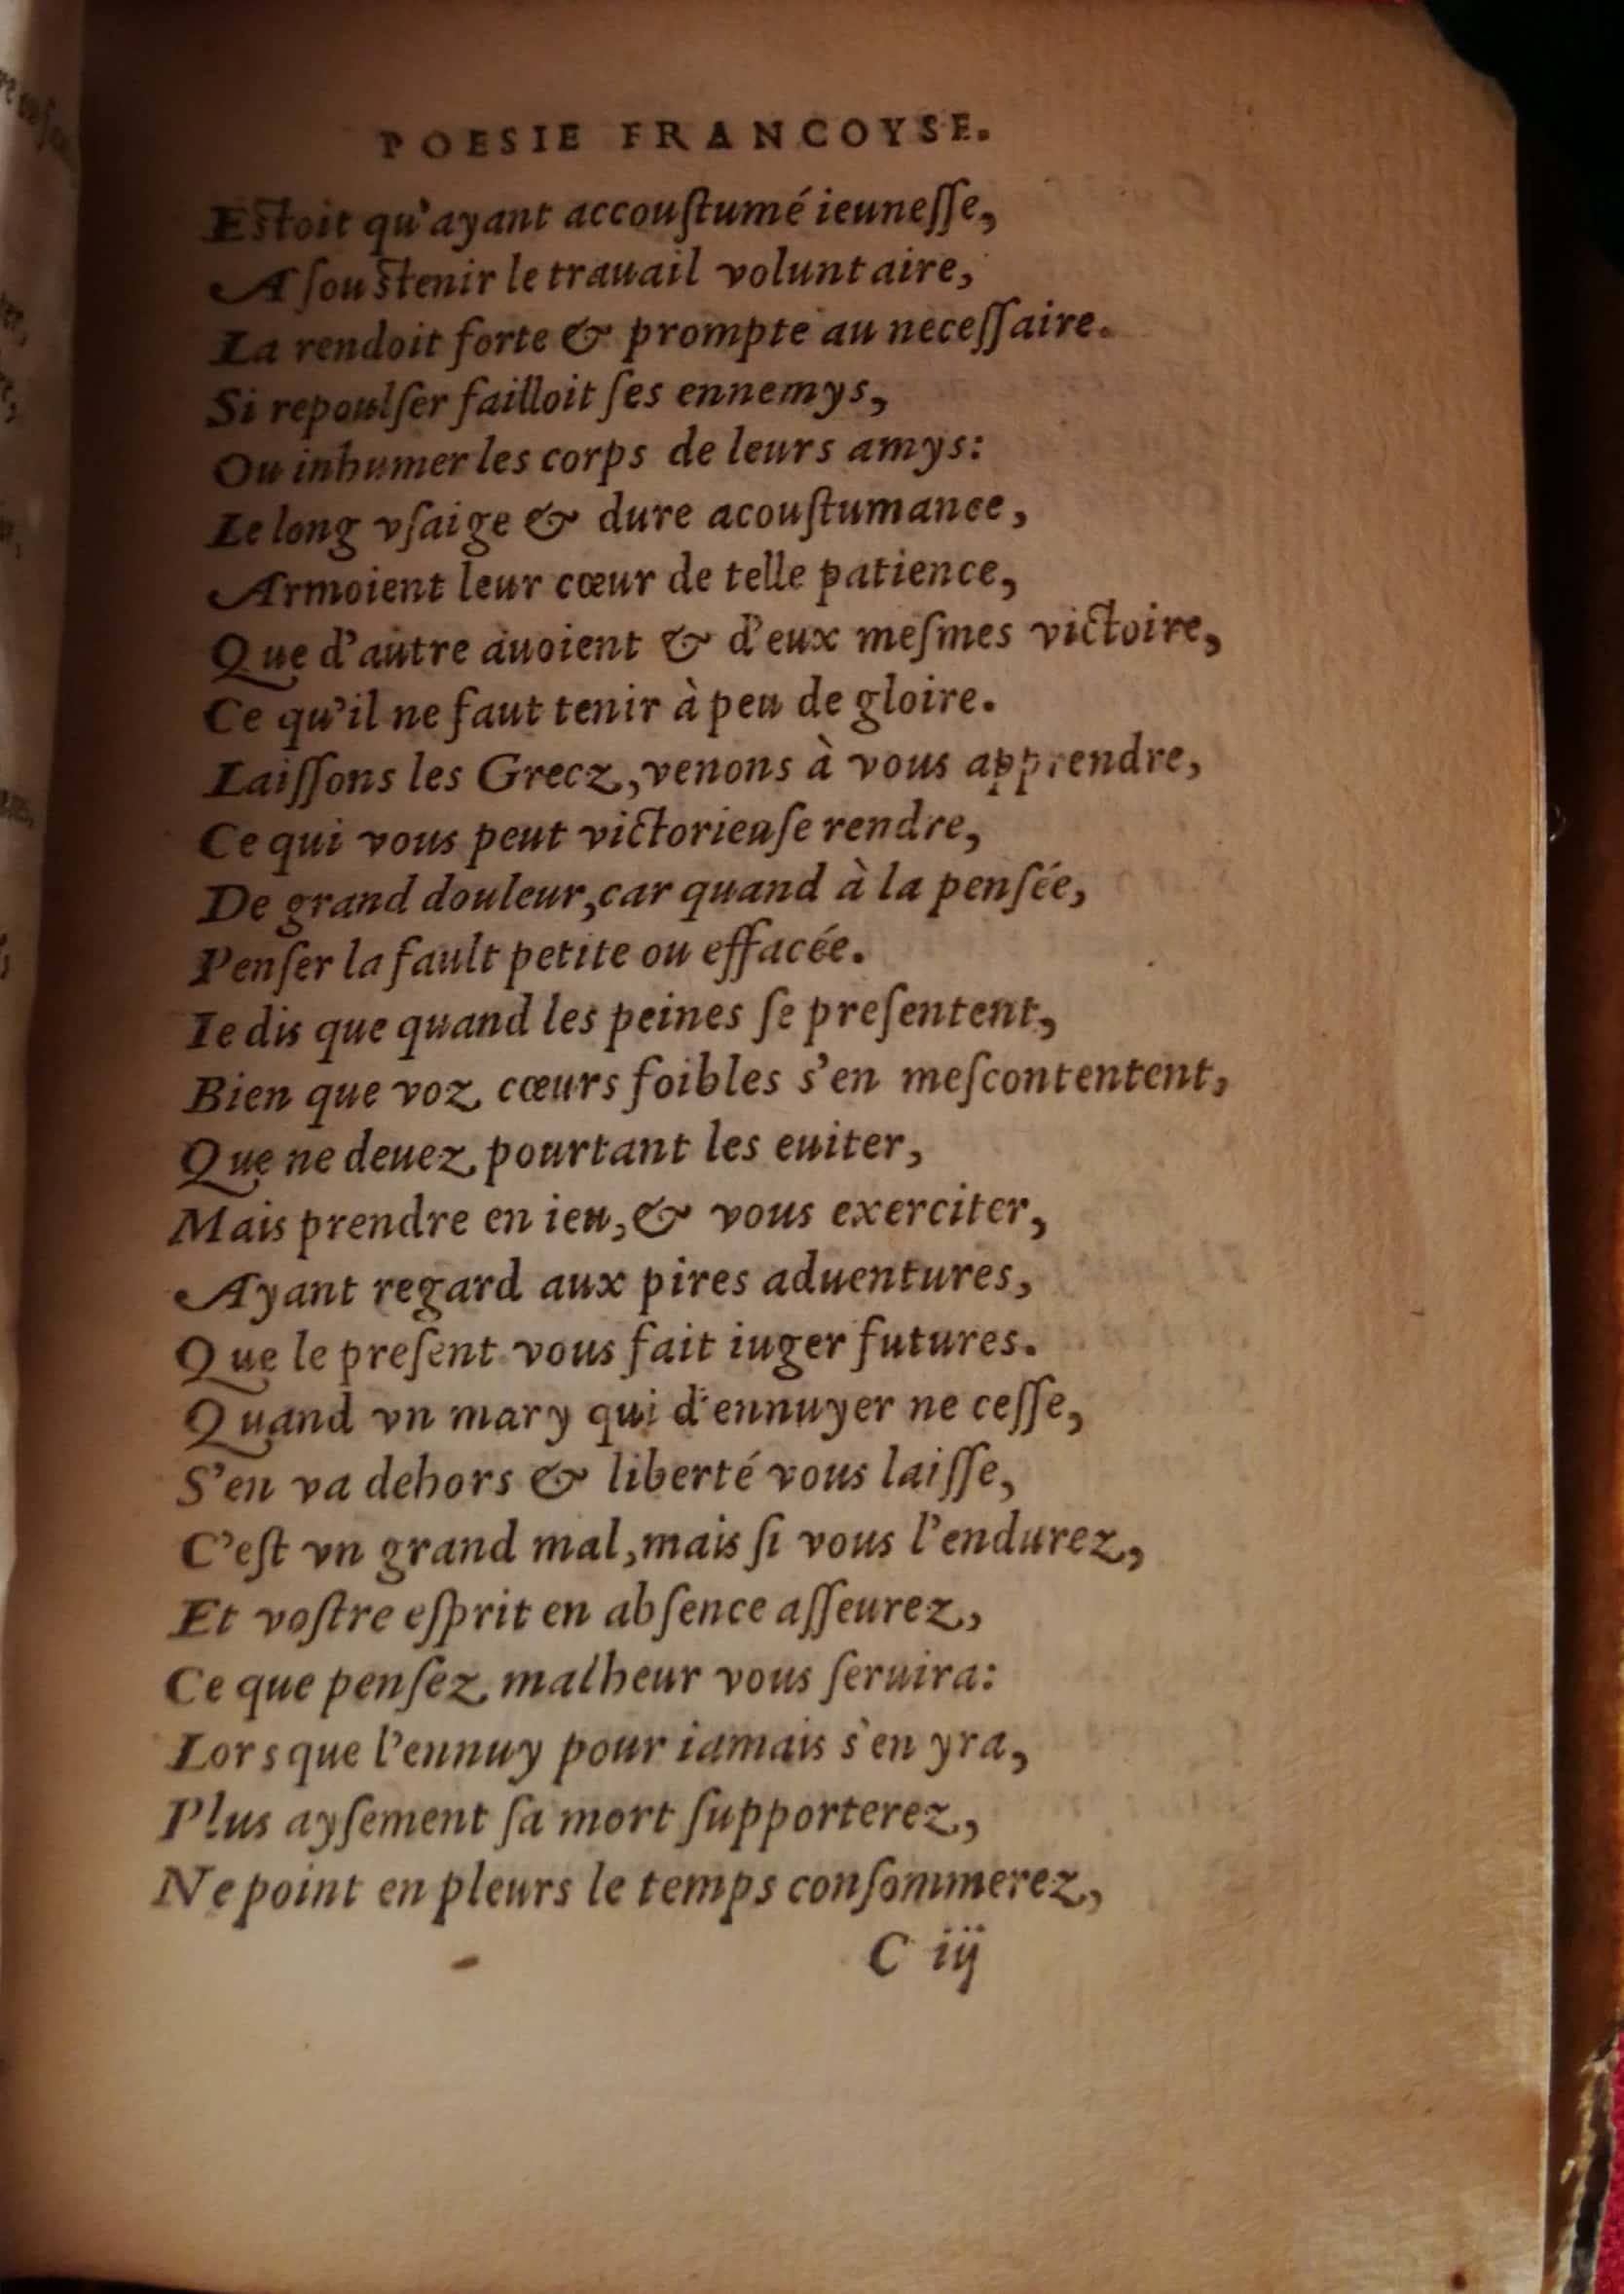 POESIE FRANCOYSE.
Estoit qu'ayant accouſtumé ieuneſſe,
A ſouſtenir le trauail voluntaire,
La rendoit forte & prompte au neceſſaire.
Si repoulſer failloit ſes ennemys,
Ou inhumer les corps de leurs amys:
Le long vſaige & dure acouſtumance,
Armoient leur cœur de telle patience,
Que d'autre auoient & d'eux meſmes victoire,
Ce qu'il ne faut tenir à peu de gloire.
Laiſſons les Grecz, venons à vous apprendre,
Ce qui vous peut victorieuſe rendre,
De grand douleur, car quand à la penſée,
Penſer la fault petite ou effacée.
Ie dis que quand les peines ſe preſentent,
Bien que voz cœurs foibles s'en meſcontentent,
Que ne deuez pourtant les euiter,
Mais prendre en ieu, & vous exerciter,
Ayant regard aux pires aduentures,
Que le preſent vous fait iuger futures.
Quand vn mary qui d'ennuyer ne ceſſe,
S'en va dehors & liberté vous laiſſe,
C'eſt vn grand mal, mais ſi vous l'endurez,
Et voſtre eſprit en abſence aſſeurez,
Ce que penſez malheur vous ſeruira:
Lors que l'ennuy pour iamais s'en yra,
Plus ayſement ſa mort ſupporterez,
Ne point en pleurs le temps conſommerez,
C iij